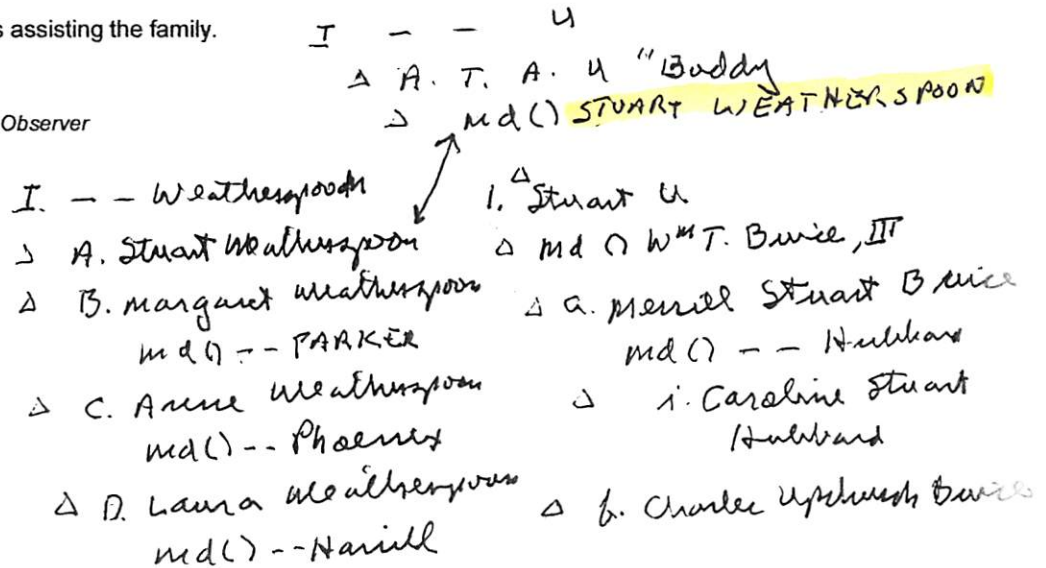 s assisting the family.
Observer
I - - U
Δ A. T. A. U "Buddy
Δ md () STUART WEATHERSPOON
I. - - Weatherspoon
Δ A. Stuart Weatherspoon
Δ B. Margaret Weatherspoon
md () -- PARKER
Δ C. Weatherspoon
md () -- Phoenix
Δ D. Laura Weatherspoon
md () -- Harrill
1. Δ Stuart U
Δ md () Wm T. Buice, III
Δ a. Merrill Stuart Buice
md () - - Hubbard
Δ i. Caroline Stuart
Hubbard
Δ b. Charles Upchurch Buice